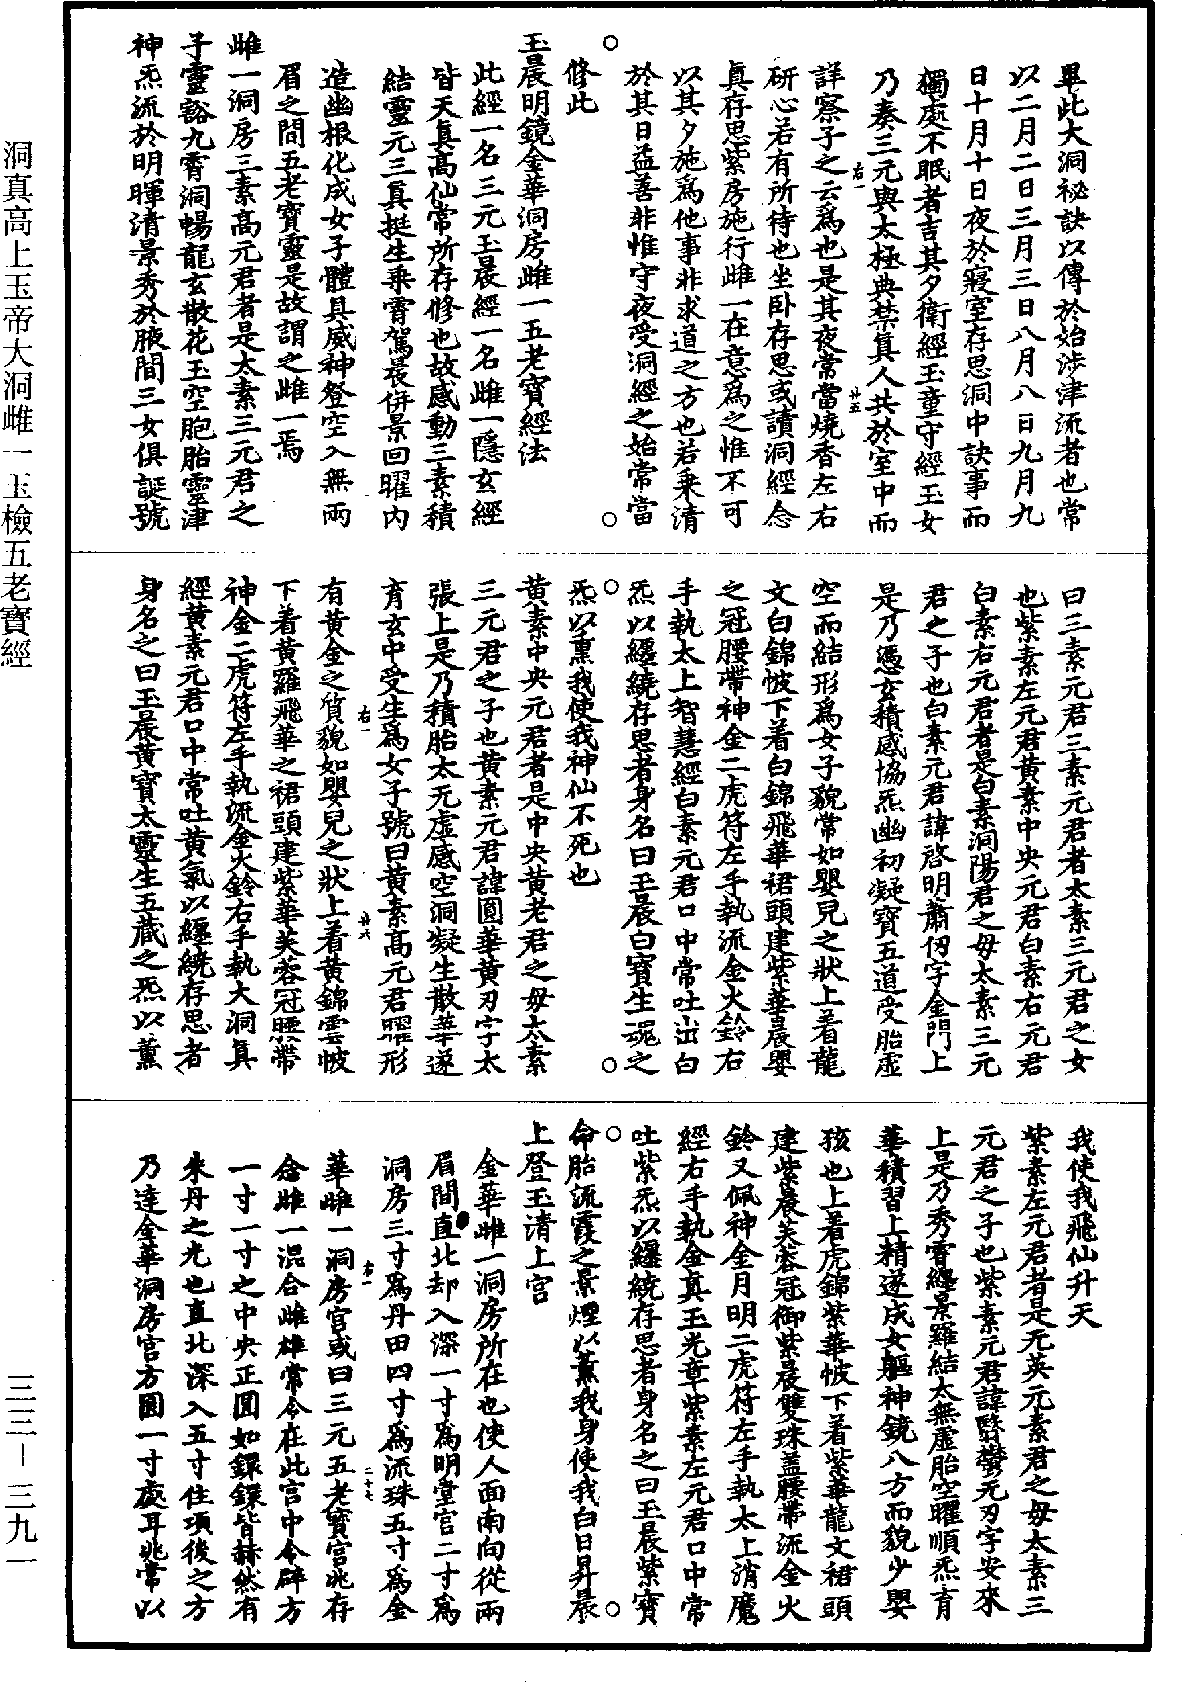 洞真高上玉帝大洞雌一玉檢五老寶經
三三—三九一
畢此大洞祕訣以傳於始涉津流者也常
以二月二日三月三日八月八日九月九
日十月十日夜於寢室存思洞中訣事而
獨處不眠者吉其夕衛經玉童守經玉女
乃奏三元與太極典禁真人共於室中而
右一
廿五
詳察子之云爲也是其夜常當燒香左右
研心若有所待也坐卧存思或讀洞經念
真存思紫房施行雌一在意爲之惟不可
以其夕施爲他事非求道之方也若乗清
於其日益善非惟守夜受洞經之始常當
修此
玉晨明鏡金華洞房雌一五老寶經法
此經一名三元玉晨經一名雌一隱玄經
皆天真高仙常所存修也故感動三素積
結靈元三真挺生乗霄駕晨併景回曜内
造幽根化成女子體具威神登空入無兩
眉之間五老寶靈是故謂之雌一焉
雌一洞房三素高元君者是太素三元君之
子靈谿九霄洞暢龍玄散花玉空胞胎靈津
神炁流於明暉清景秀於腋間三女俱誕號
曰三素元君三素元君者太素三元君之女
也紫素左元君黄素中央元君白素右元君
白素右元君者是白素洞陽君之母太素三元
君之子也白素元君諱啓明蕭刃字金門上
是乃憑玄積感協炁幽初凝寶五道受胎虛
空而結形爲女子貌常如嬰兒之狀上着龍
文白錦帔下着白錦飛華裙頭建紫華晨嬰
之冠腰帶神金二虎符左手執流金火鈴右
手執太上智慧經白素元君口中常吐出白
炁以纒繞存思者身名曰玉晨白寶生魂之
炁以熏我使我神仙不死也
黄素中央元君者是中央黄老君之母太素
三元君之子也黄素元君諱圓華黄刃字太
張上是乃積胎太无虛感空洞凝生散華遂
育玄中受生爲女子號曰黄素高元君曜形
右一
廿六
有黄金之質貌如嬰兒之狀上着黄錦雲帔
下着黄羅飛華之裙頭建紫華芙蓉冠腰帶
神金二虎符左手執流金火鈴右手執大洞真
經黄素元君口中常吐黄氣以纒繞存思者
身名之曰玉晨黄寶太靈生五藏之炁以薰
我使我飛仙升天
紫素左元君者是无英元素君之母太素三
元君之子也紫素元君諱翳鬱无刃字安來
上是乃秀睿纒景羅結太無虛胎空曜順炁育
華積習上精遂成女軀神鏡八方而貌少嬰
孩也上着虎錦紫華帔下着紫華龍文裙頭
建紫晨芙蓉冠御紫晨雙珠盖腰帶流金火
鈴又佩神金月明二虎符左手執太上消魔
經右手執金真玉光章紫素左元君口中常
吐紫炁以纒繞存思者身名之曰玉晨紫寶
命胎流霞之景煙以薰我身使我白日昇晨
上登玉清上宫
金華雌一洞房所在也使人面南向從兩
眉間直北却入深一寸爲明堂宫二寸爲
洞房三寸爲丹田四寸爲流珠五寸爲金
右一
二十七
華雌一洞房宫或曰三元五老寶宫兆存
念雌一混合雌雄常令在此宫中令辟方
一寸一寸之中央正圓如鐶鐶皆赫然有
朱丹之光也直北深入五寸住項後之方
乃達金華洞房宫方圓一寸處耳兆常以